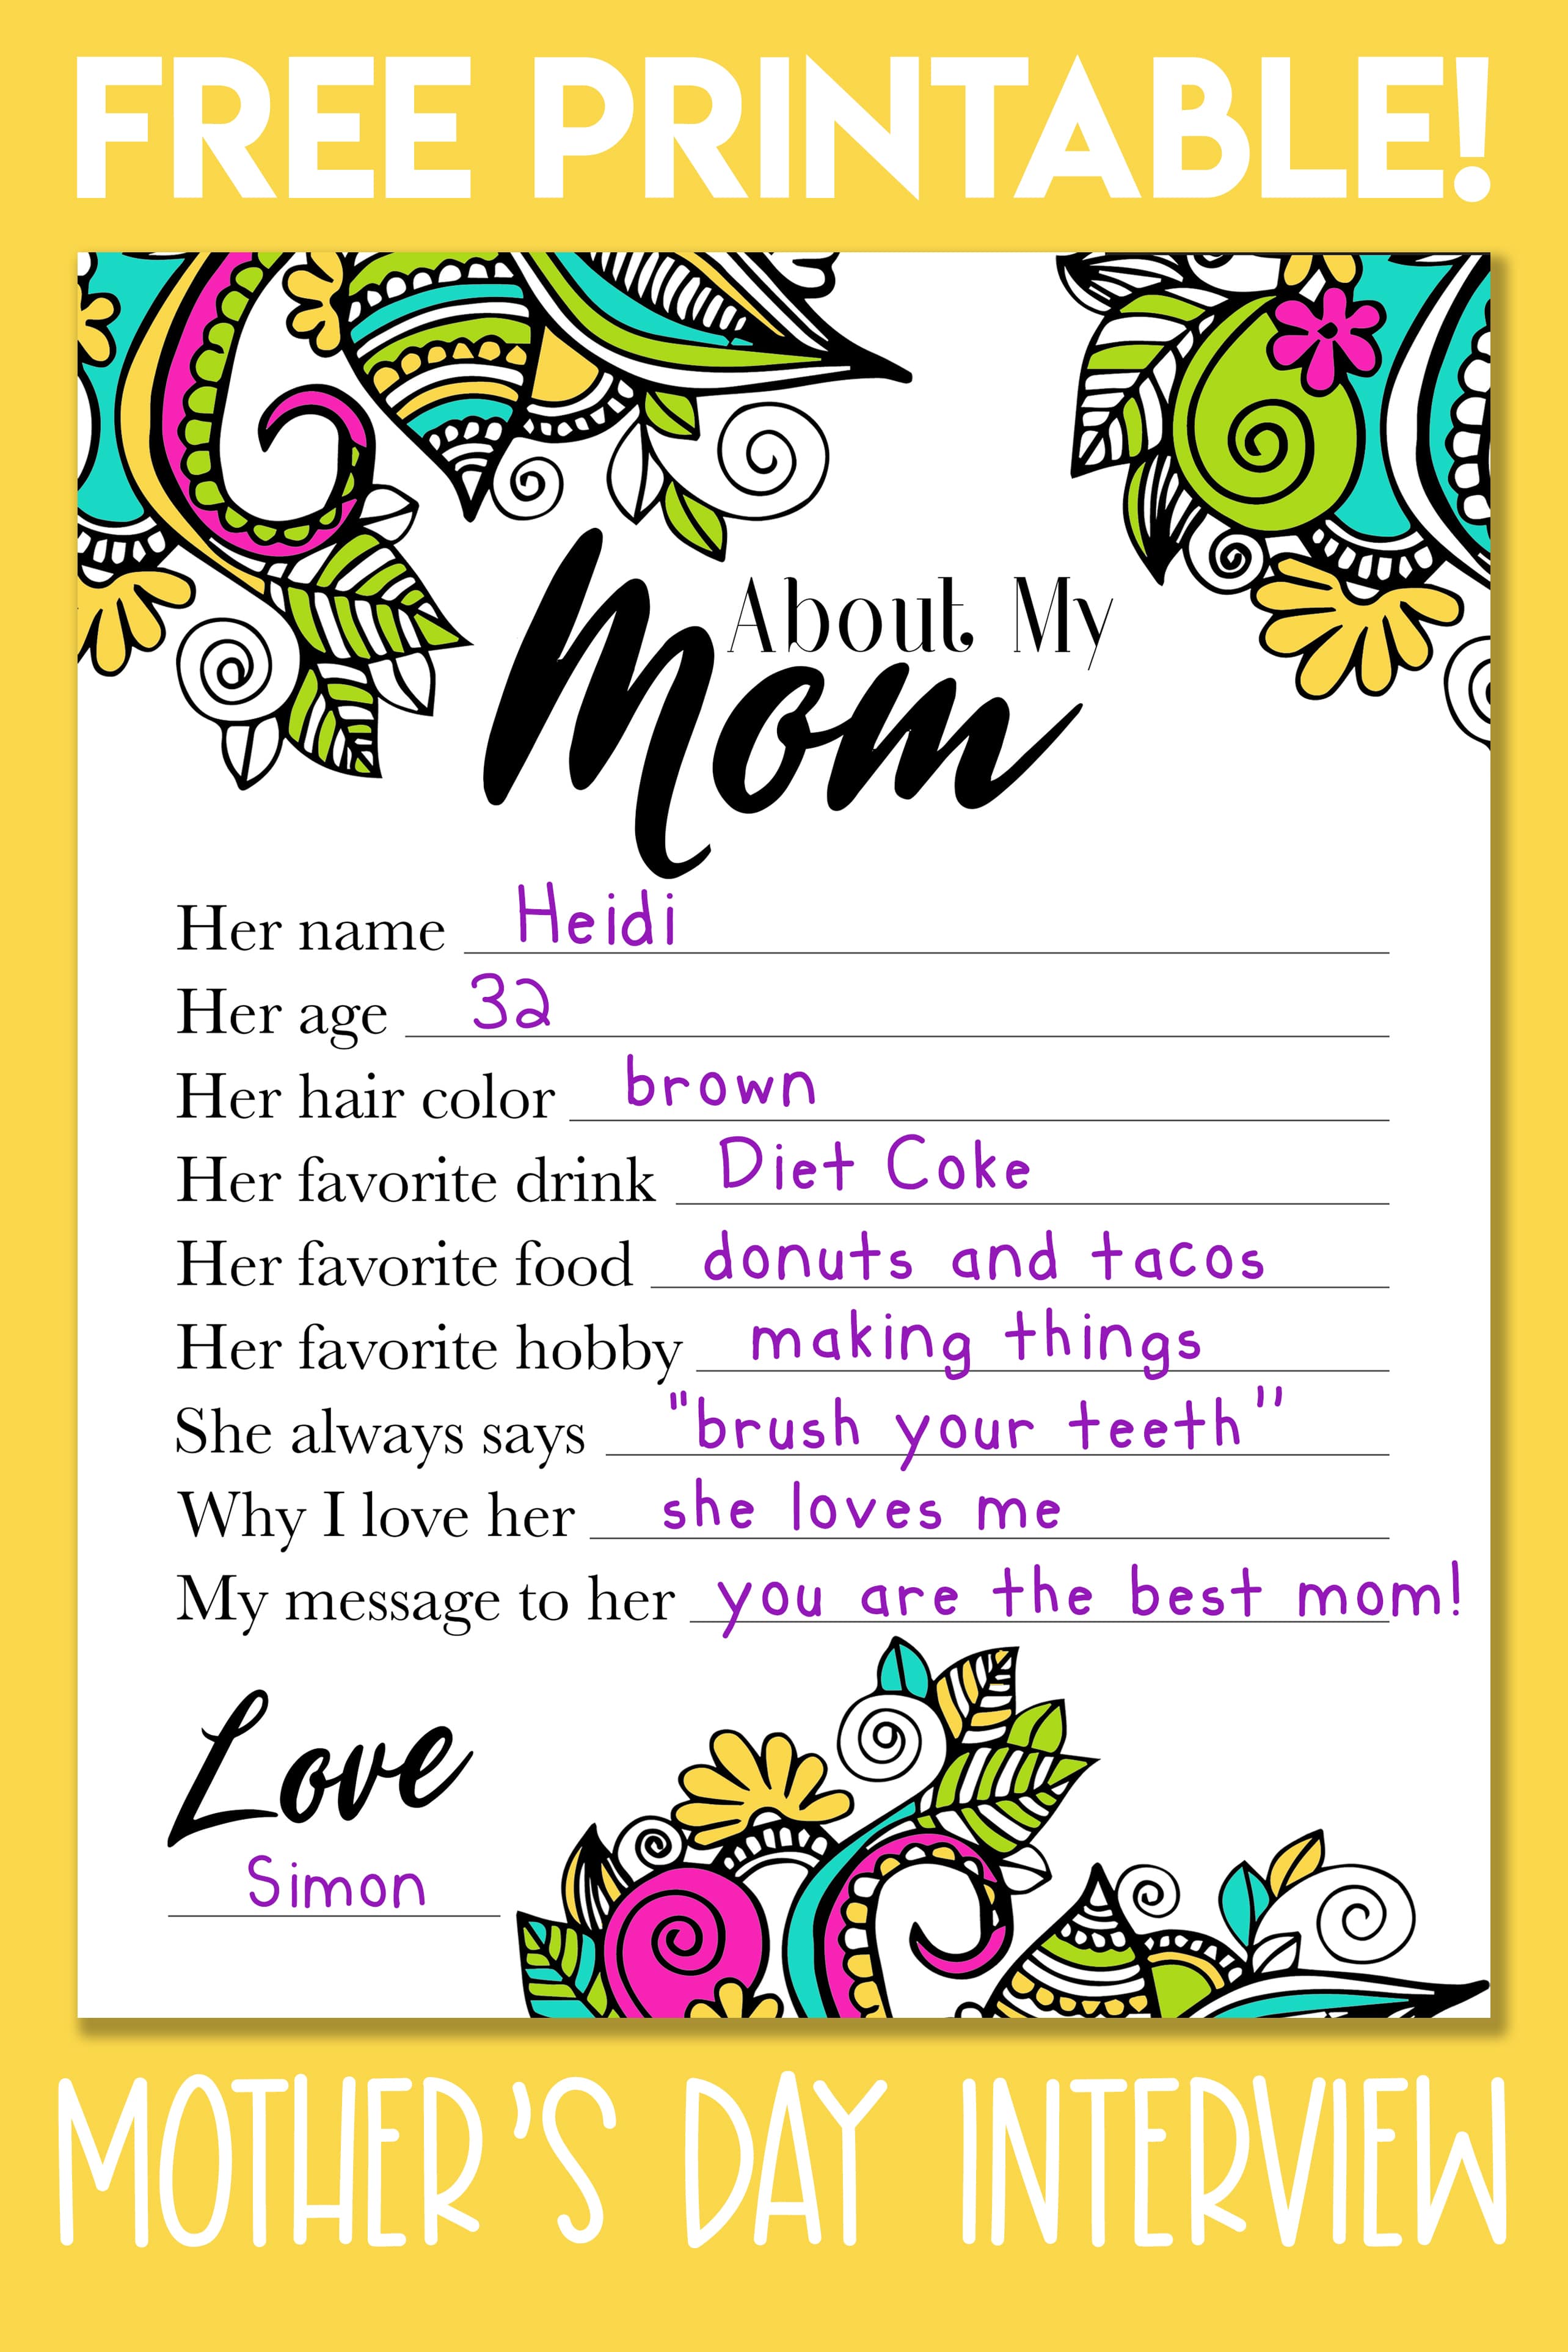 FREE PRINTABLE!
About My
Mom
Her name Heidi
Her age 32
Her hair color brown
Her favorite drink Diet Coke
Her favorite food donuts and tacos
Her favorite hobby making things
She always says "brush your teeth"
Why I love her she loves me
My message to her you are the best mom!
Love
Simon
MOTHER'S DAY INTERVIEW